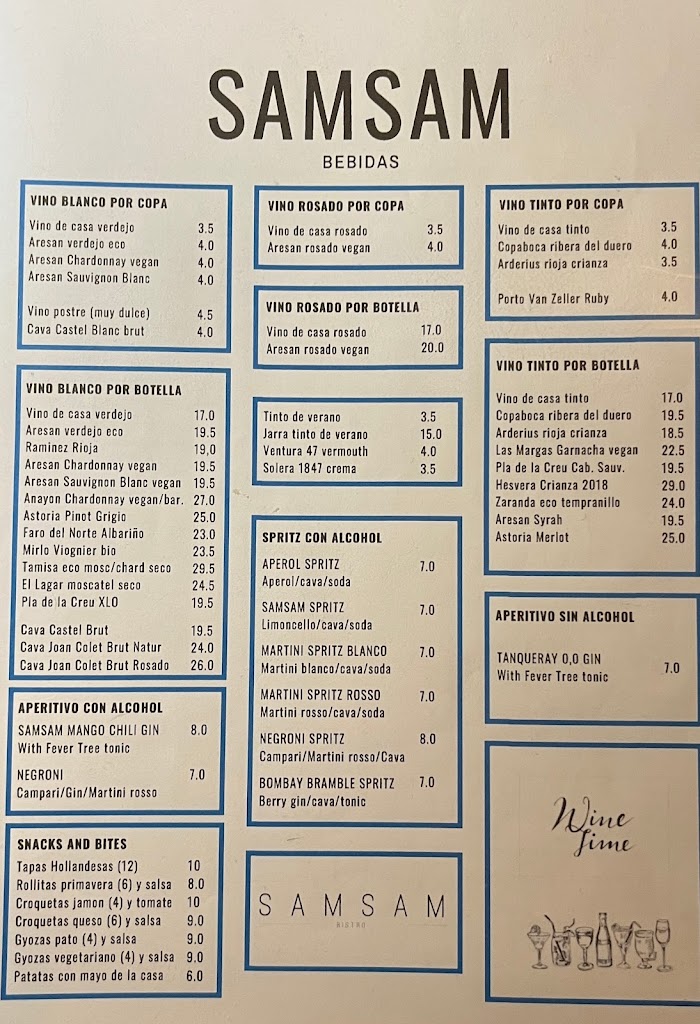 SAMSAM
BEBIDAS
VINO BLANCO POR COPA
Vino de casa verdejo 3.5
Aresan verdejo eco 4.0
Aresan Chardonnay vegan 4.0
Aresan Sauvignon Blanc 4.0
Vino postre (muy dulce) 4.5
Cava Castel Blanc brut 4.0
VINO BLANCO POR BOTELLA
Vino de casa verdejo 17.0
Aresan verdejo eco 19.5
Raminez Rioja 19,0
Aresan Chardonnay vegan 19.5
Aresan Sauvignon Blanc vegan 19.5
Anayon Chardonnay vegan/bar. 27.0
Astoria Pinot Grigio 25.0
Faro del Norte Albariño 23.0
Mirlo Viognier bio 23.5
Tamisa eco mosc/chard seco 29.5
El Lagar moscatel seco 24.5
Pla de la Creu XLO 19.5
Cava Castel Brut 19.5
Cava Joan Colet Brut Natur 24.0
Cava Joan Colet Brut Rosado 26.0
APERITIVO CON ALCOHOL
SAMSAM MANGO CHILI GIN 8.0
With Fever Tree tonic
NEGRONI 7.0
Campari/Gin/Martini rosso
SNACKS AND BITES
Tapas Hollandesas (12) 10
Rollitas primavera (6) y salsa 8.0
Croquetas jamon (4) y tomate 10
Croquetas queso (6) y salsa 9.0
Gyozas pato (4) y salsa 9.0
Gyozas vegetariano (4) y salsa 9.0
Patatas con mayo de la casa 6.0
VINO ROSADO POR COPA
Vino de casa rosado 3.5
Aresan rosado vegan 4.0
VINO ROSADO POR BOTELLA
Vino de casa rosado 17.0
Aresan rosado vegan 20.0
Tinto de verano 3.5
Jarra tinto de verano 15.0
Ventura 47 vermouth 4.0
Solera 1847 crema 3.5
SPRITZ CON ALCOHOL
APEROL SPRITZ 7.0
Aperol/cava/soda
SAMSAM SPRITZ 7.0
Limoncello/cava/soda
MARTINI SPRITZ BLANCO 7.0
Martini blanco/cava/soda
MARTINI SPRITZ ROSSO 7.0
Martini rosso/cava/soda
NEGRONI SPRITZ 8.0
Campari/Martini rosso/Cava
BOMBAY BRAMBLE SPRITZ 7.0
Berry gin/cava/tonic
SAMSAM
BISTRO
VINO TINTO POR COPA
Vino de casa tinto 3.5
Copaboca ribera del duero 4.0
Arderius rioja crianza 3.5
Porto Van Zeller Ruby 4.0
VINO TINTO POR BOTELLA
Vino de casa tinto 17.0
Copaboca ribera del duero 19.5
Arderius rioja crianza 18.5
Las Margas Garnacha vegan 22.5
Pla de la Creu Cab. Sauv. 19.5
Hesvera Crianza 2018 29.0
Zaranda eco tempranillo 24.0
Aresan Syrah 19.5
Astoria Merlot 25.0
APERITIVO SIN ALCOHOL
TANQUERAY 0,0 GIN 7.0
With Fever Tree tonic
Wine
Time